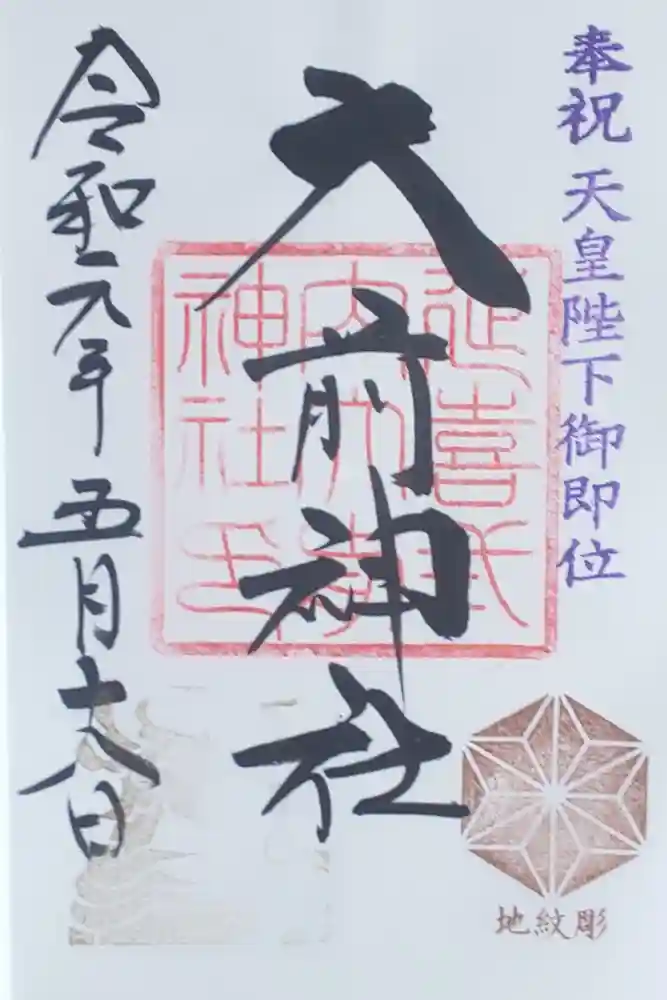 奉祝 天皇陛下御即位
大前神社
延喜式
内大前
神社印
令和元年 五月十八日
地紋彫